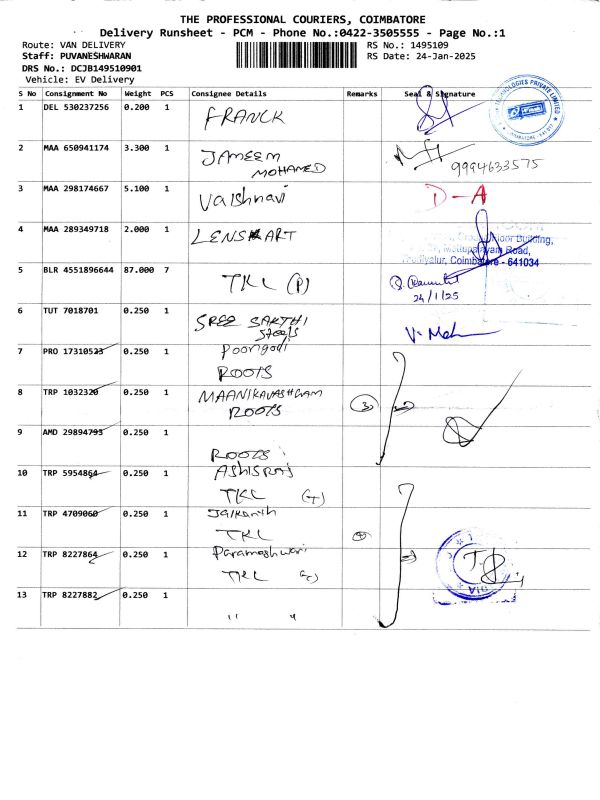 THE PROFESSIONAL COURIERS, COIMBATORE
Delivery Runsheet - PCM - Phone No.:0422-3505555 - Page No.:1
Route: VAN DELIVERY
RS No.: 1495109
Staff: PUVANESHWARAN
RS Date: 24-Jan-2025
DRS No.: DCJB149510901
Vehicle: EV Delivery
S No Consignment No Weight PCS Consignee Details Remarks Seal & Signature
1 DEL 530237256 0.200 1 FRANCK
2 MAA 650941174 3.300 1 JAMEEM
MOHAMED 9994633575
3 MAA 298174667 5.100 1 Vaishnavi D-A
4 MAA 289349718 2.000 1 LENSKART
Building,
Road,
Coimbatore - 641034
5 BLR 4551896644 87.000 7 TKL (P)
24/1/25
6 TUT 7018701 0.250 1 SREE SAKTHI
Steels
7 PRO 17310523 0.250 1
ROOTS
8 TRP 1032320 0.250 1 MAANIKAVASHGAM
ROOTS (3)
9 AMD 29894793 0.250 1
ROOTS
10 TRP 5954864 0.250 1 ASHISRAJ
TKL
11 TRP 4709060 0.250 1 Jaikanth
TKL
12 TRP 8227864 0.250 1 Parameshwari
TKL
13 TRP 8227882 0.250 1
" "